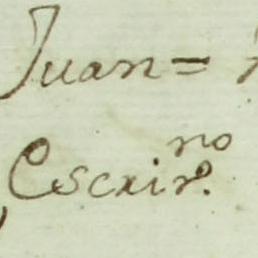 Juan=
Escrivno.